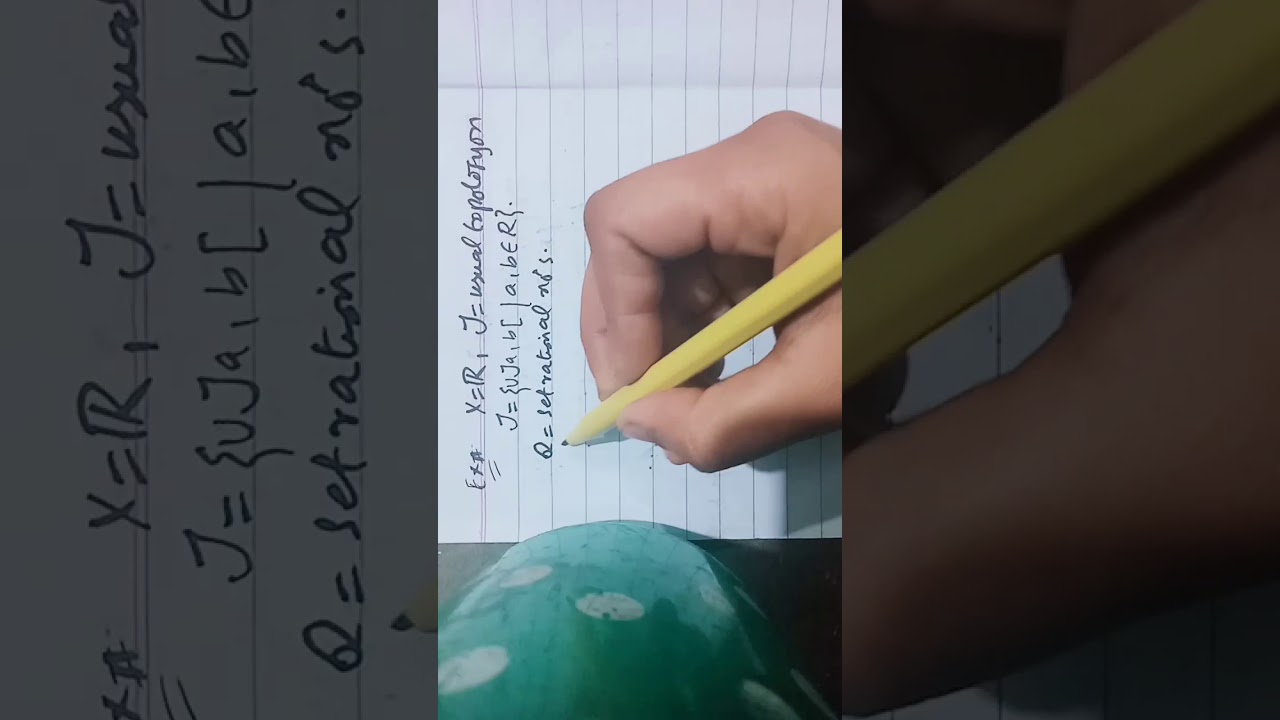 Ex#: X=ℝ, J=usual topology on
J={∪]a,b[ | a,b∈R}.
Q=set rational no's.